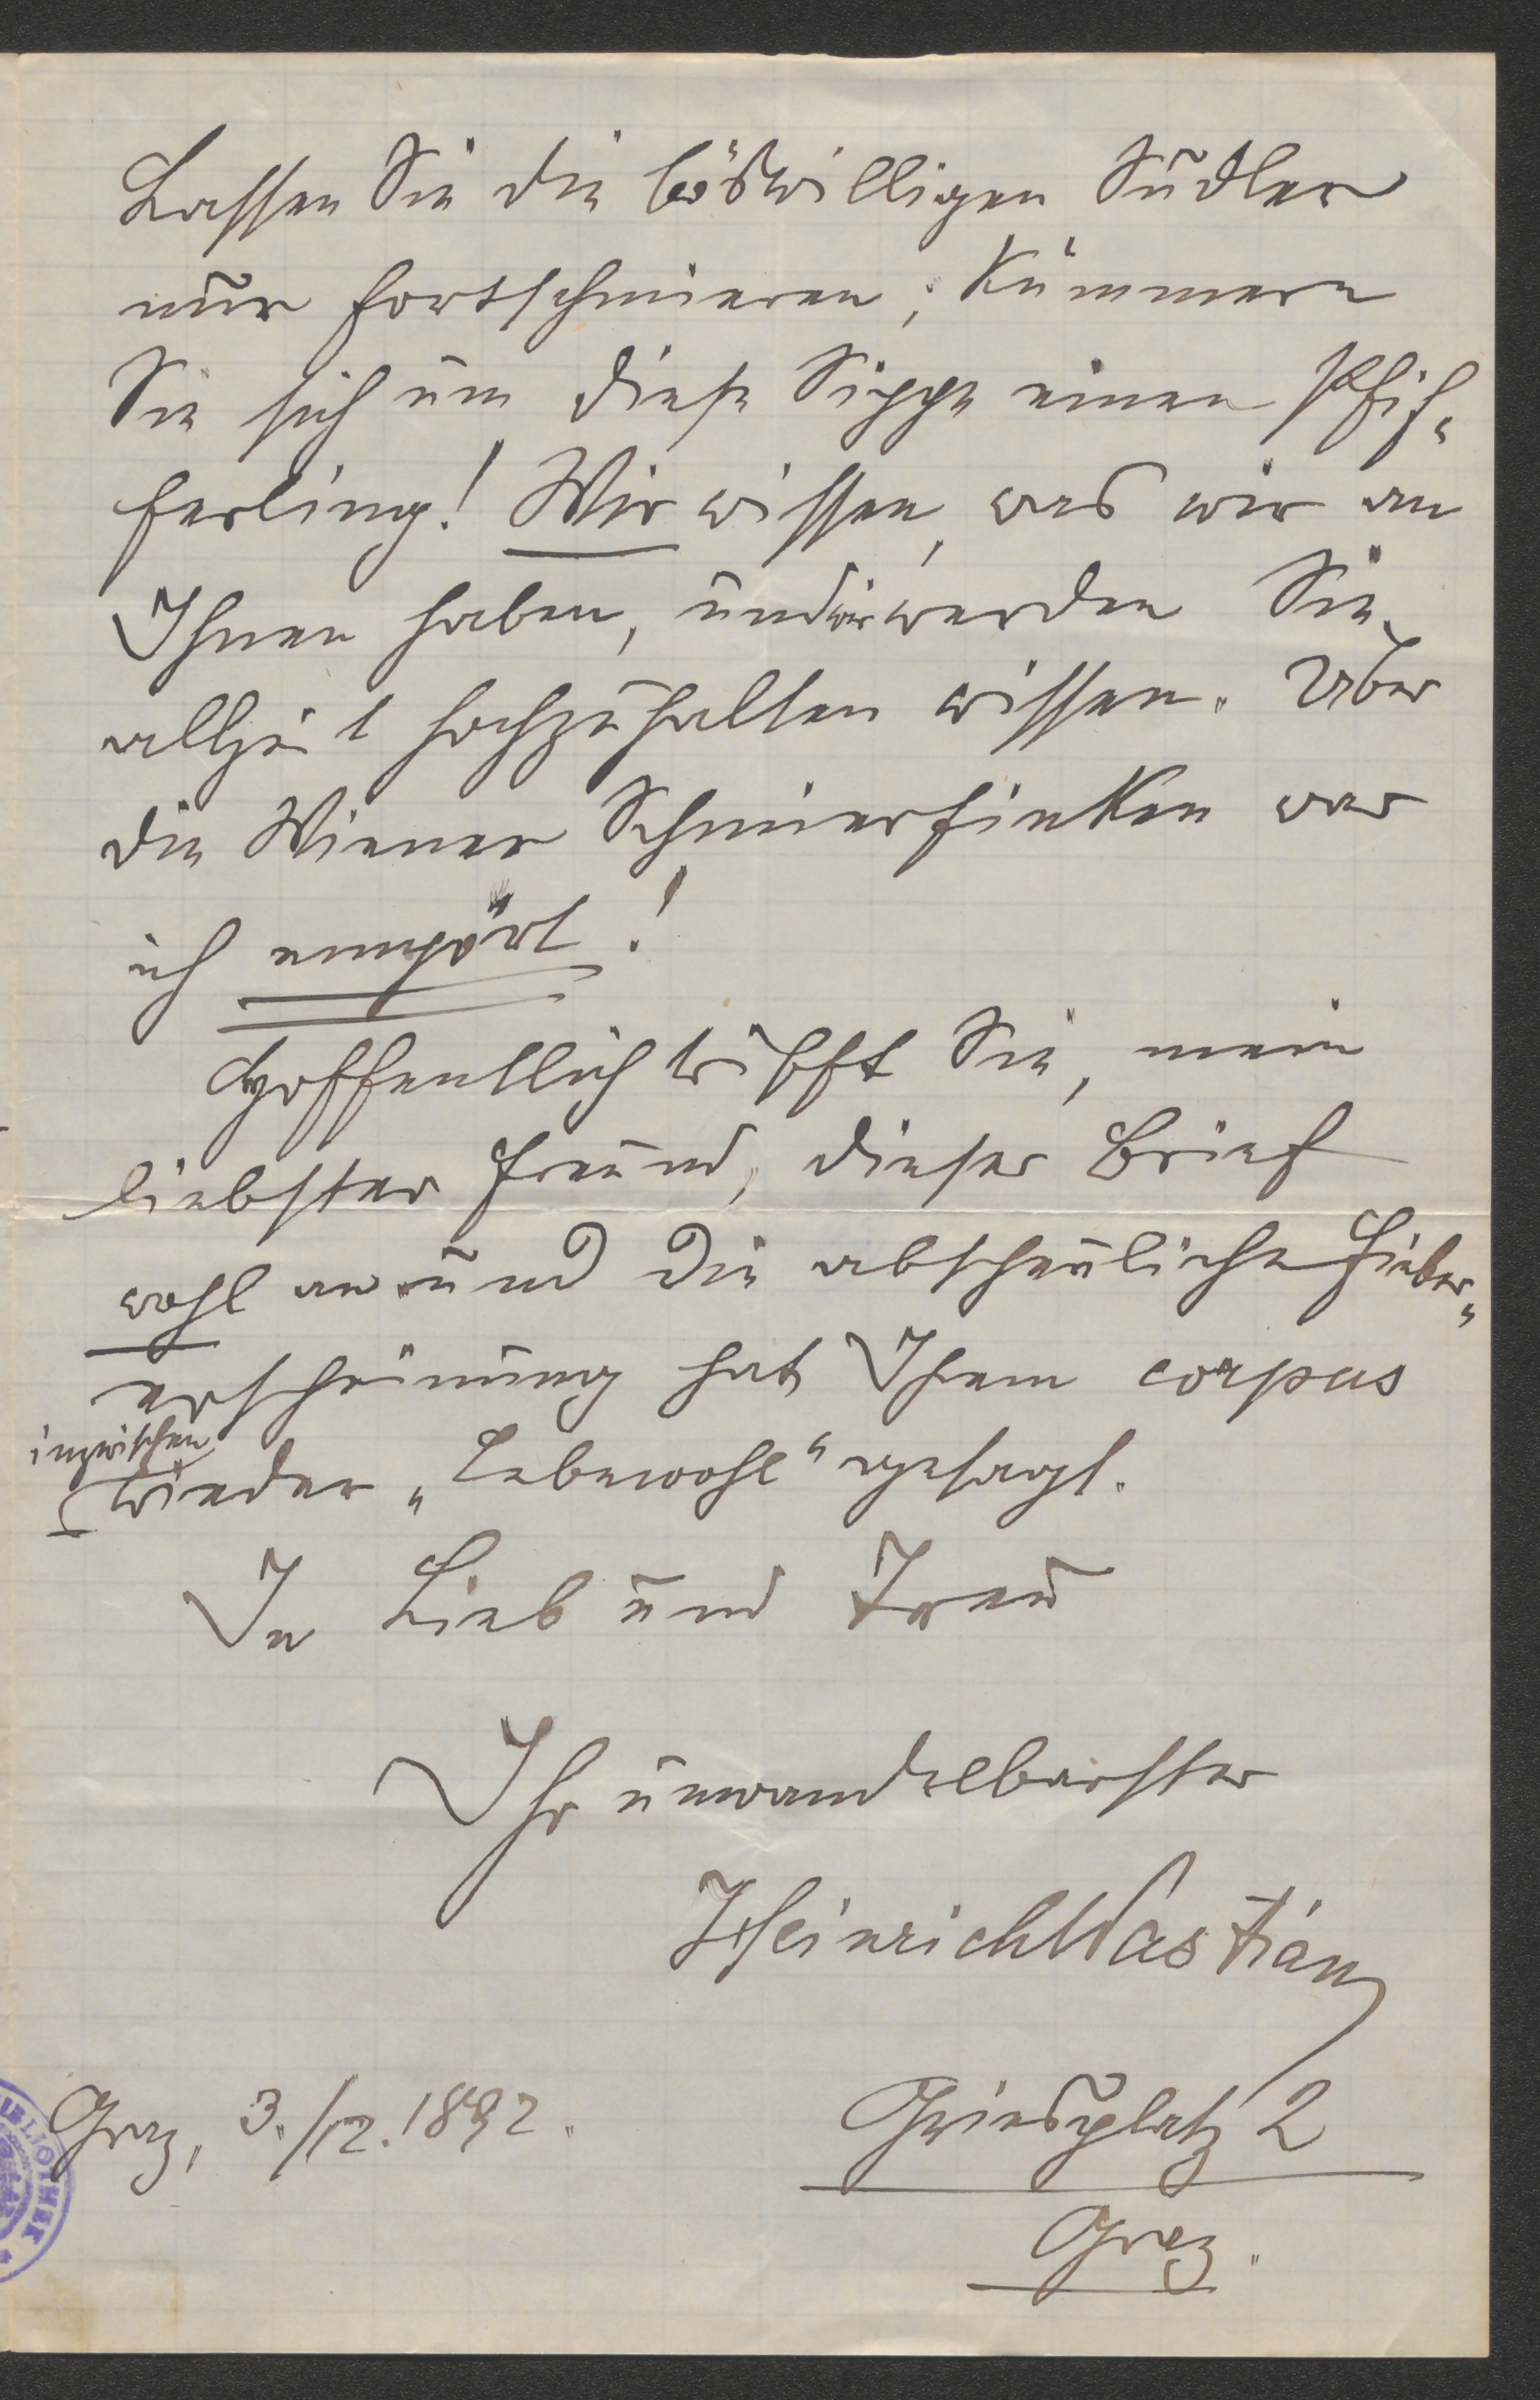 Lassen Sie die böswilligen Sudler
nur fortschmieren; kümmern
Sie sich um diese Sippe einen Pfif-
ferling! Wir wissen, was wir an
Ihnen haben, und wir werden Sie
allzeit hochzuhalten wissen. Über
die Wiener Schmierfinken war
ich empört!
Hoffentlich trifft Sie, mein
liebster Freund, dieser Brief
wohl an und die abscheuliche Fieber-
erscheinung hat Ihrem corpus
inzwischen
wieder „Lebewohl“ gesagt.
In Lieb und Treu
Ihr unwandelbarster
Heinrich Wastian
Graz, 3./12. 1892.
Griesplatz 2
Graz.